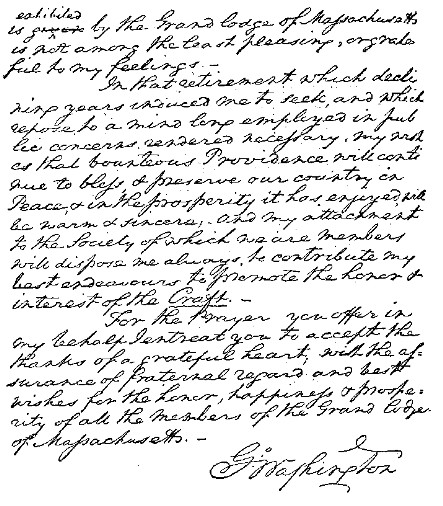 exhibited
is given by the Grand lodge of Massachusetts
is not among the least pleasing, or grate
ful to my feelings. —
In that retirement which decli
ning years induced me to seek, and which
repose, to a mind long employed in pub
lic concerns, rendered necessary, my wish
es that bounteous Providence will conti
nue to bless & preserve our country in
Peace, & in the prosperity it has enjoyed, will
be warm & sincere; And my attachment
to the Society of which we are members
will dispose me always, to contribute my
best endeavours to promote the honor &
interest of the Craft. —
For the Prayer you offer in
my behalf I entreat you to accept the
thanks of a grateful heart; with the as-
surance of fraternal regard and best
wishes for the honor, happiness & prospe-
rity of all the members of the Grand Lodge
of Massachusetts. —
G. Washington